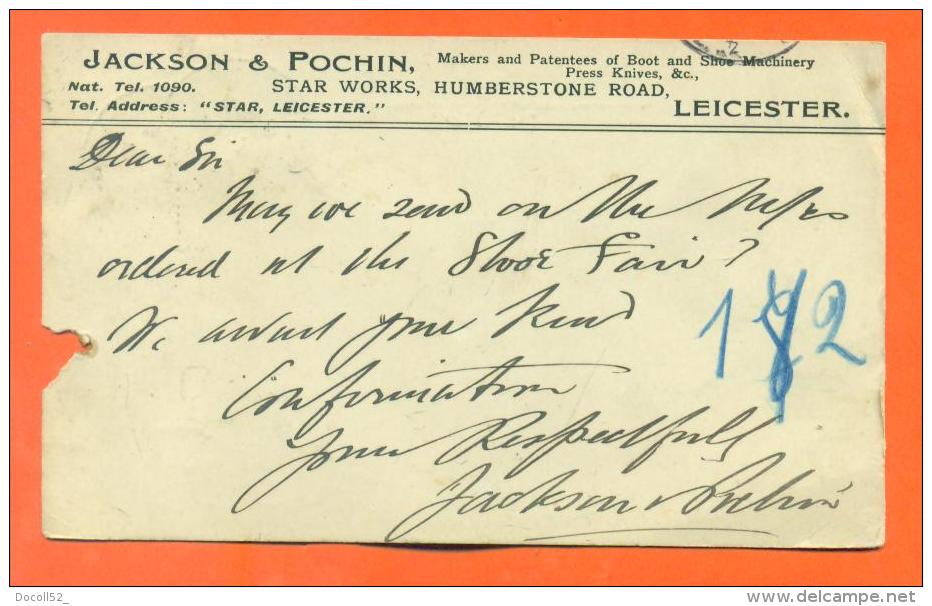 JACKSON & POCHIN,
Makers and Patentees of Boot and Shoe Machinery
Press Knives, &c.,
Nat. Tel. 1090.
STAR WORKS, HUMBERSTONE ROAD,
Tel. Address: "STAR, LEICESTER."
LEICESTER.
Dear Sir
May we send on the
ordered at the Shoe Fair?
We await your kind
Confirmation
Your Respectfull
Jackson & Pochin
1 2
Docoll52_
delcampe.net